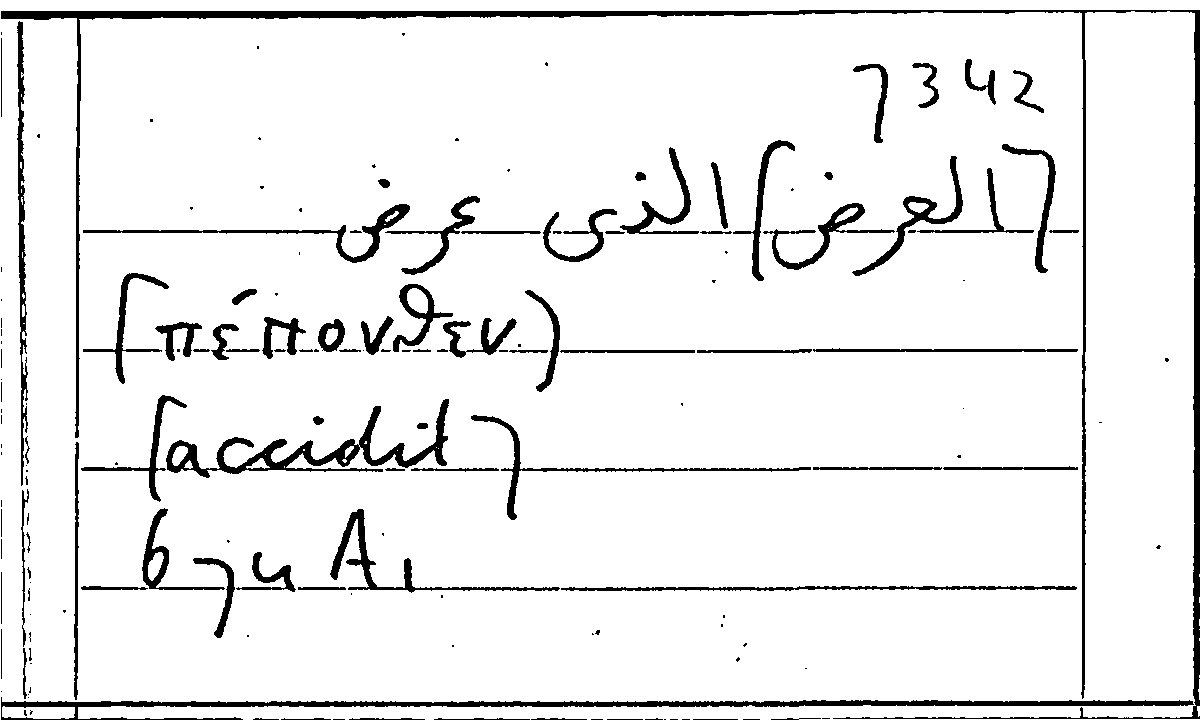 7342
[العرض] الذى عرض
(πέπονθεν)
[accidit]
674 A1